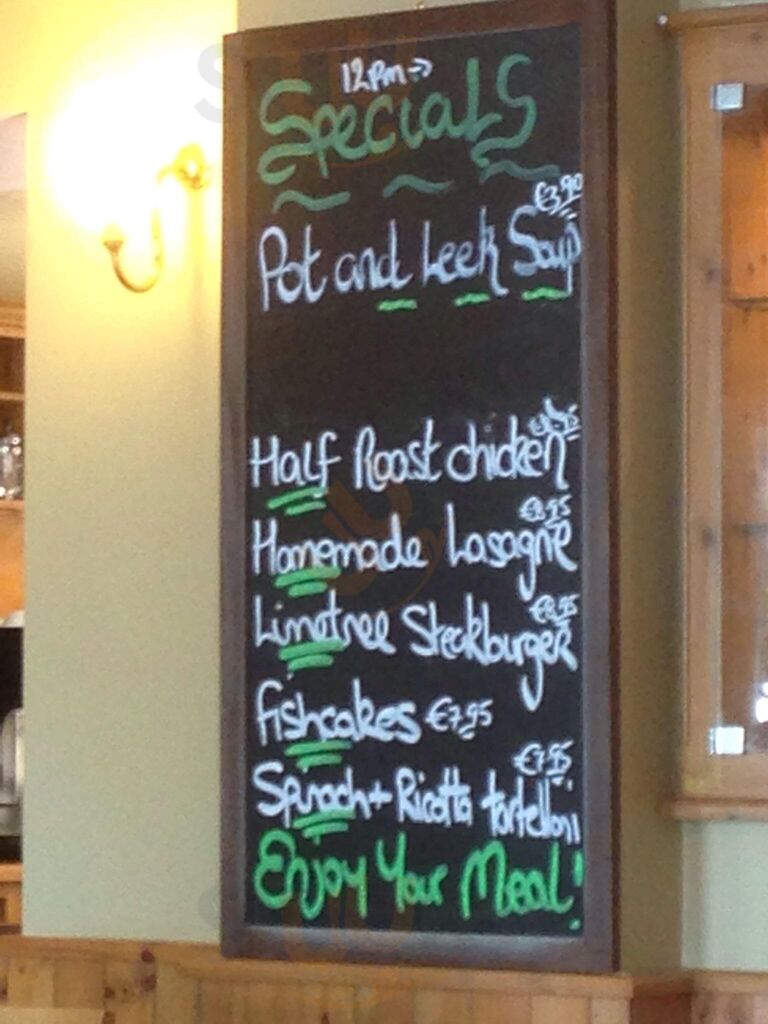 12pm →
Specials
€3,90
Pot and Leek Soup
Half Roast chicken
€8,95
Homemade Lasagne
€8,95
Limetree Steakburger
fishcakes €7,95
€7,95
Spinach + Ricotta tortelloni
Enjoy Your Meal!